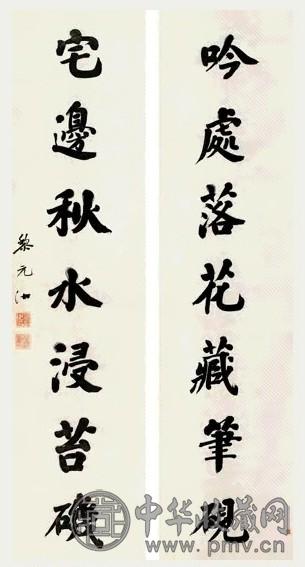 吟處落花藏筆硯
宅邊秋水浸苔磯
黎元洪
中华收藏网
www.pmv.cn